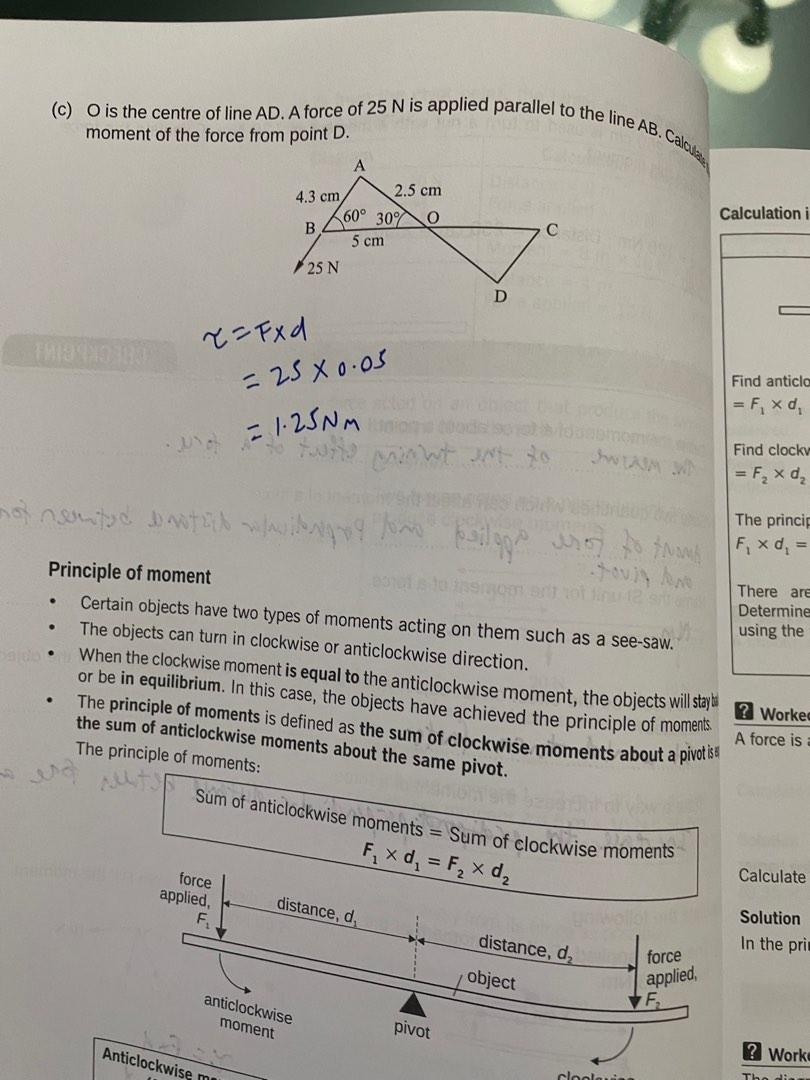 (c) O is the centre of line AD. A force of 25 N is applied parallel to the line AB. Calculate
moment of the force from point D.
A
4.3 cm
2.5 cm
60° 30°
O
B
C
5 cm
25 N
D
τ = F x d
= 25 x 0.05
= 1.25 Nm
Principle of moment
• Certain objects have two types of moments acting on them such as a see-saw.
• The objects can turn in clockwise or anticlockwise direction.
• When the clockwise moment is equal to the anticlockwise moment, the objects will stay
or be in equilibrium. In this case, the objects have achieved the principle of moments.
• The principle of moments is defined as the sum of clockwise moments about a pivot is
the sum of anticlockwise moments about the same pivot.
The principle of moments:
Sum of anticlockwise moments = Sum of clockwise moments
F₁ × d₁ = F₂ × d₂
force
applied,
F₁
distance, d₁
distance, d₂
force
applied,
F₂
object
anticlockwise
moment
pivot
Anticlockwise
Calculation i
Find anticlo
= F₁ × d₁
Find clockw
= F₂ × d₂
The princip
F₁ × d₁ =
There are
Determine
using the
? Worke
A force is
Calculate
Solution
In the pri
? Work